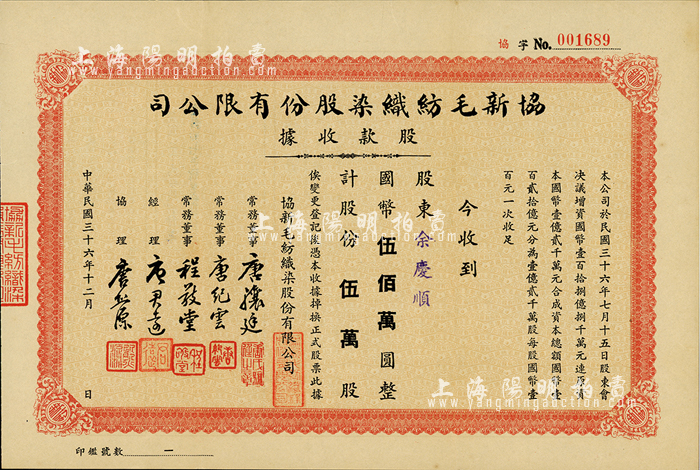 協字 No. 001689
協新毛紡織染股份有限公司
股款收據
本公司於民國三十六年七月十五日股東會
决議增資國幣壹百拾捌億捌千萬元連原資
本國幣壹億貳千萬元合成資本總額國幣壹
百貳拾億元分為壹億貳千萬股每股國幣壹
百元一次收足
今收到
股東余慶順
國幣伍佰萬圓整
計股份伍萬股
俟變更登記後憑本收據掉換正式股票此據
協新毛紡織染股份有限公司
常務董事 唐驤廷
常務董事 唐紀雲
常務董事 程敬堂
經理 唐君遠
協理 唐熊源
中華民國三十六年十二月 日
印鑑號數 一
上海陽明拍賣
www.yangmingauction.com
上海陽明拍賣
www.yangmingauction.com
上海陽明拍賣
www.yangmingauction.com